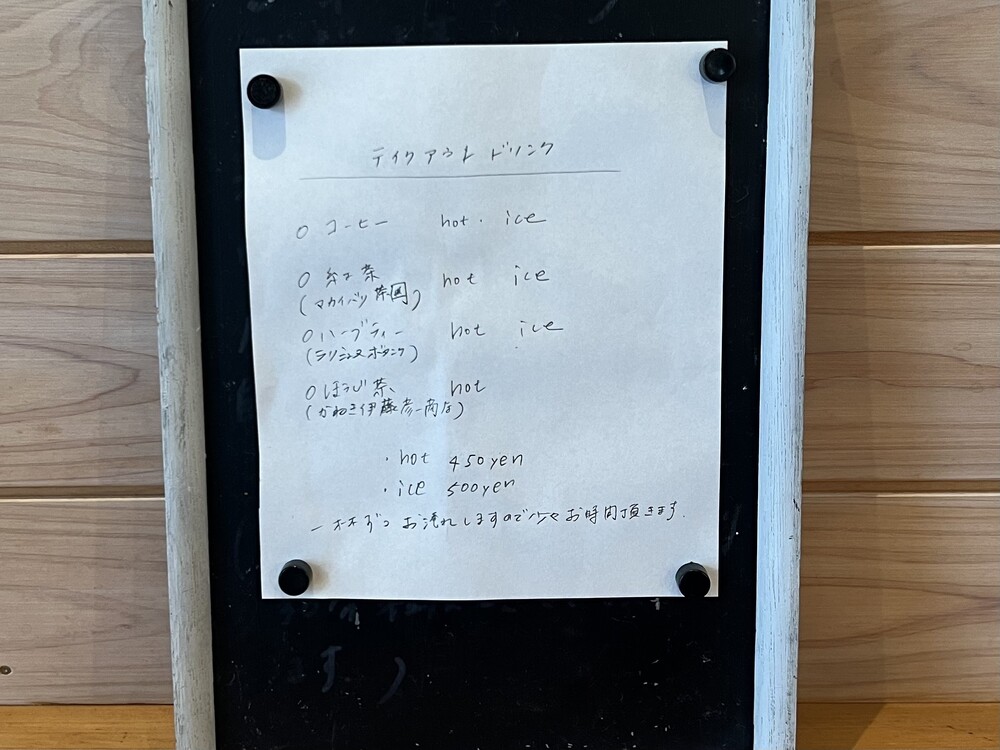 テイクアウトドリンク
○ コーヒー hot・ice
○ 紅茶 hot ice
(マカイバリ茶園)
○ ハーブティー hot ice
(ラリシュヌボタニク)
○ ほうじ茶、 hot
(かねき伊藤彦市商店)
・hot 450yen
・ice 500yen
一杯ずつお淹れしますので少々お時間頂きます.
す )